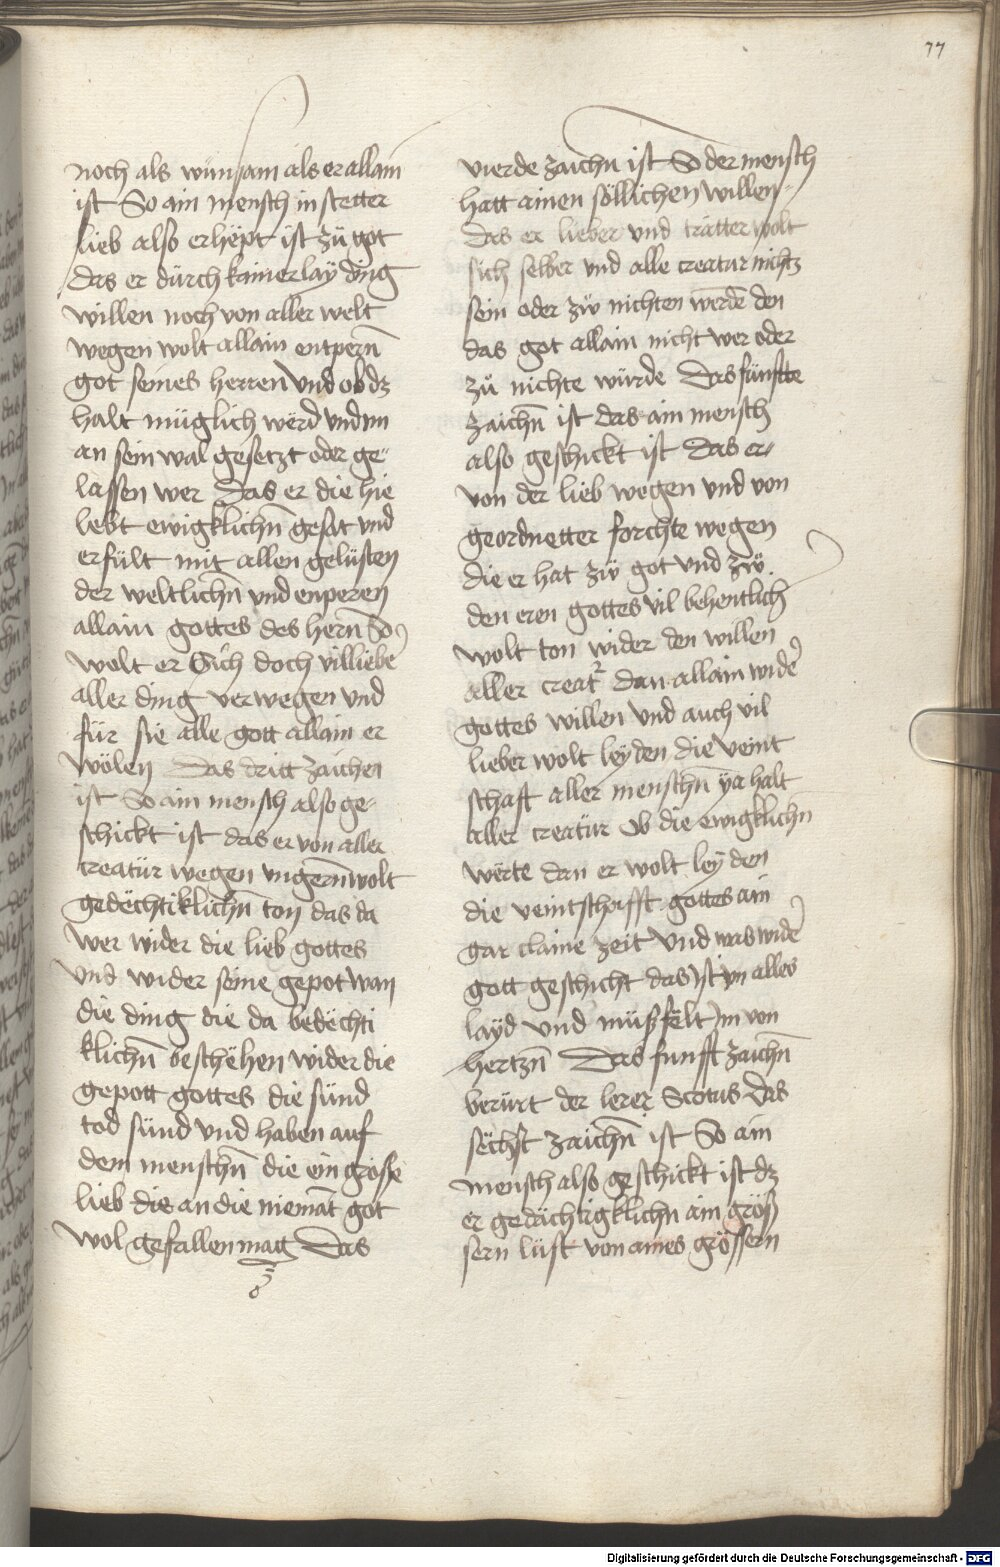 77
noch als wünsam als er allain
ist So ain mensch in stetter
lieb also erhëpt ist zü got
das er dürch kainerlaÿ ding
willen noch von aller welt
wegen wolt allain entpern̄
got seines herren vnd ob dz
halt müglich wërd vnd im
an sein wal gesetzt oder ge-
lassen wer Das er die hie
lebt ewigklichn̄ gesat vnd
erfült mit allen gelüsten
der weltlichn̄ vnd enperen
allain gottes des hern̄ So
wolt er Sich doch villieber
aller ding verwegen vnd
für sie alle gott allain er
wölen Das dritt zaichen
ist So ain mensch also ge-
schickt ist das er von aller
creatür wegen vngern̄ wolt
gedëchtiklichn̄ ton das da
wer wider die lieb gottes
vnd wider seine gepot wan
die ding die da bedëchti
klichn̄ beschëhen wider die
gepott gottes die sünd
tod sünd vnd haben auf
dem menschn̄ die ein grosse
lieb die an die niemāt got
wol gefallen mag Das
vierde zaichn̄ ist So der mensch
hatt ainen söllichen willen-
das er lieber vnd trätter wolt
sich selber vnd alle creatur nichtz
sein oder zw̋ nichten werdē den
das got allain nicht wer oder
zü nichte würde Das fünffte
zaichn̄ ist das ain mensch
also geschickt ist das er-
von der lieb wegen vnd von
geordnetter forchte wegen
die er hat zw̋ got vnd zw̋
den eren gottes vil behentlich
wolt ton wider den willen
aller creatr̄ dan allain wider
gottes willen vnd auch vil
lieber wolt leyden die veint
schaft aller menschn̄ ya halt
aller creatür Ob die ewigklichn̄
wërte dan er wolt leyden
die veintschafft gottes ain
gar claine zeit vnd was wider
gott geschicht das ist ym alles
layd vnd müsfëlt im von
hertzn̄ Das funfft zaichn̄
berürt der lerer Scotus Das
sëchst zaichn̄ ist So ain
mensch also geschickt ist dz
er gedächtigklichn ain grös
sern lüst von aines grössern
Digitalisierung gefördert durch die Deutsche Forschungsgemeinschaft - DFG